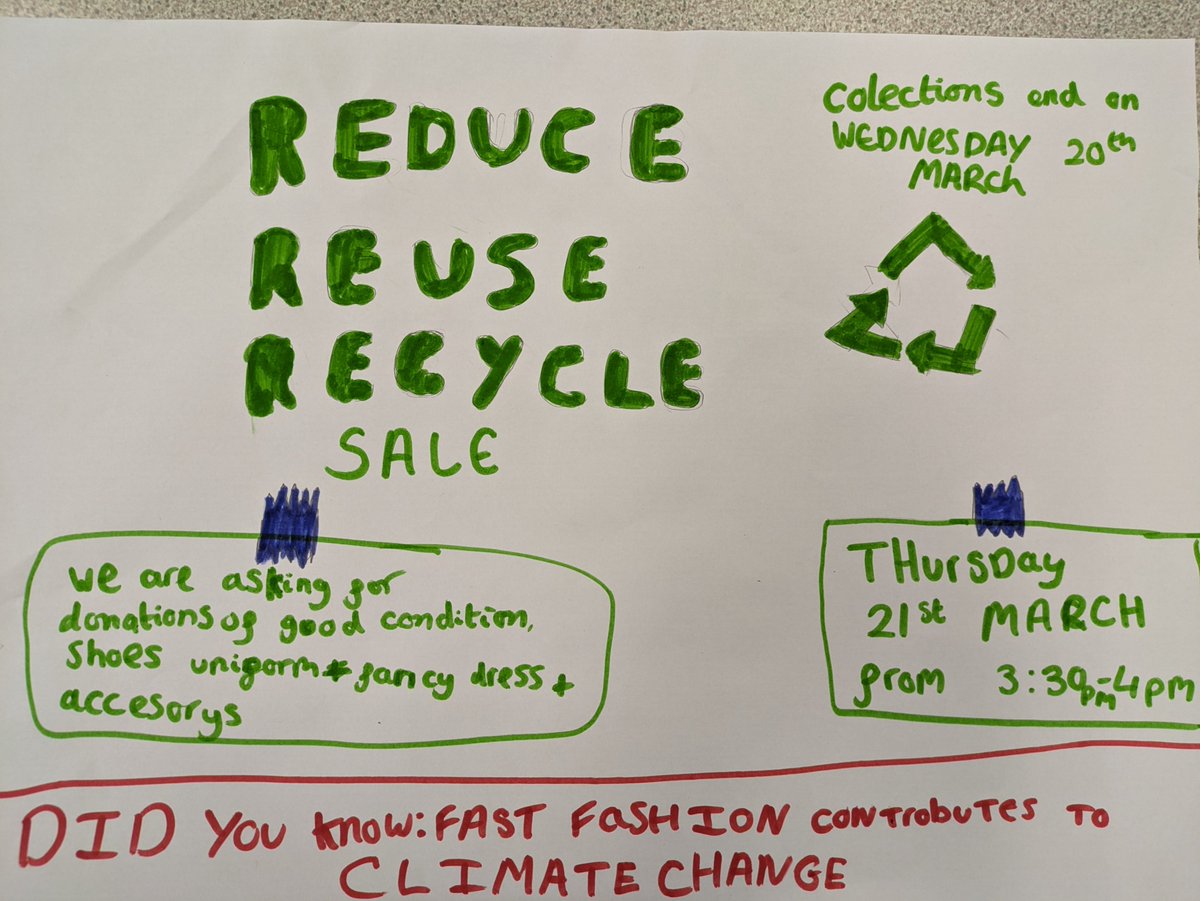 REDUCE
REUSE
RECYCLE
SALE
Colections end on
WEDNESDAY 20th
MARCH
we are asking for
donations of good condition,
shoes uniform + fancy dress +
accesorys
THursDay
21st MARCH
from 3:30pm-4pm
DID You know: FAST FaSHION conTrobuTes To
CLIMATE CHANGE